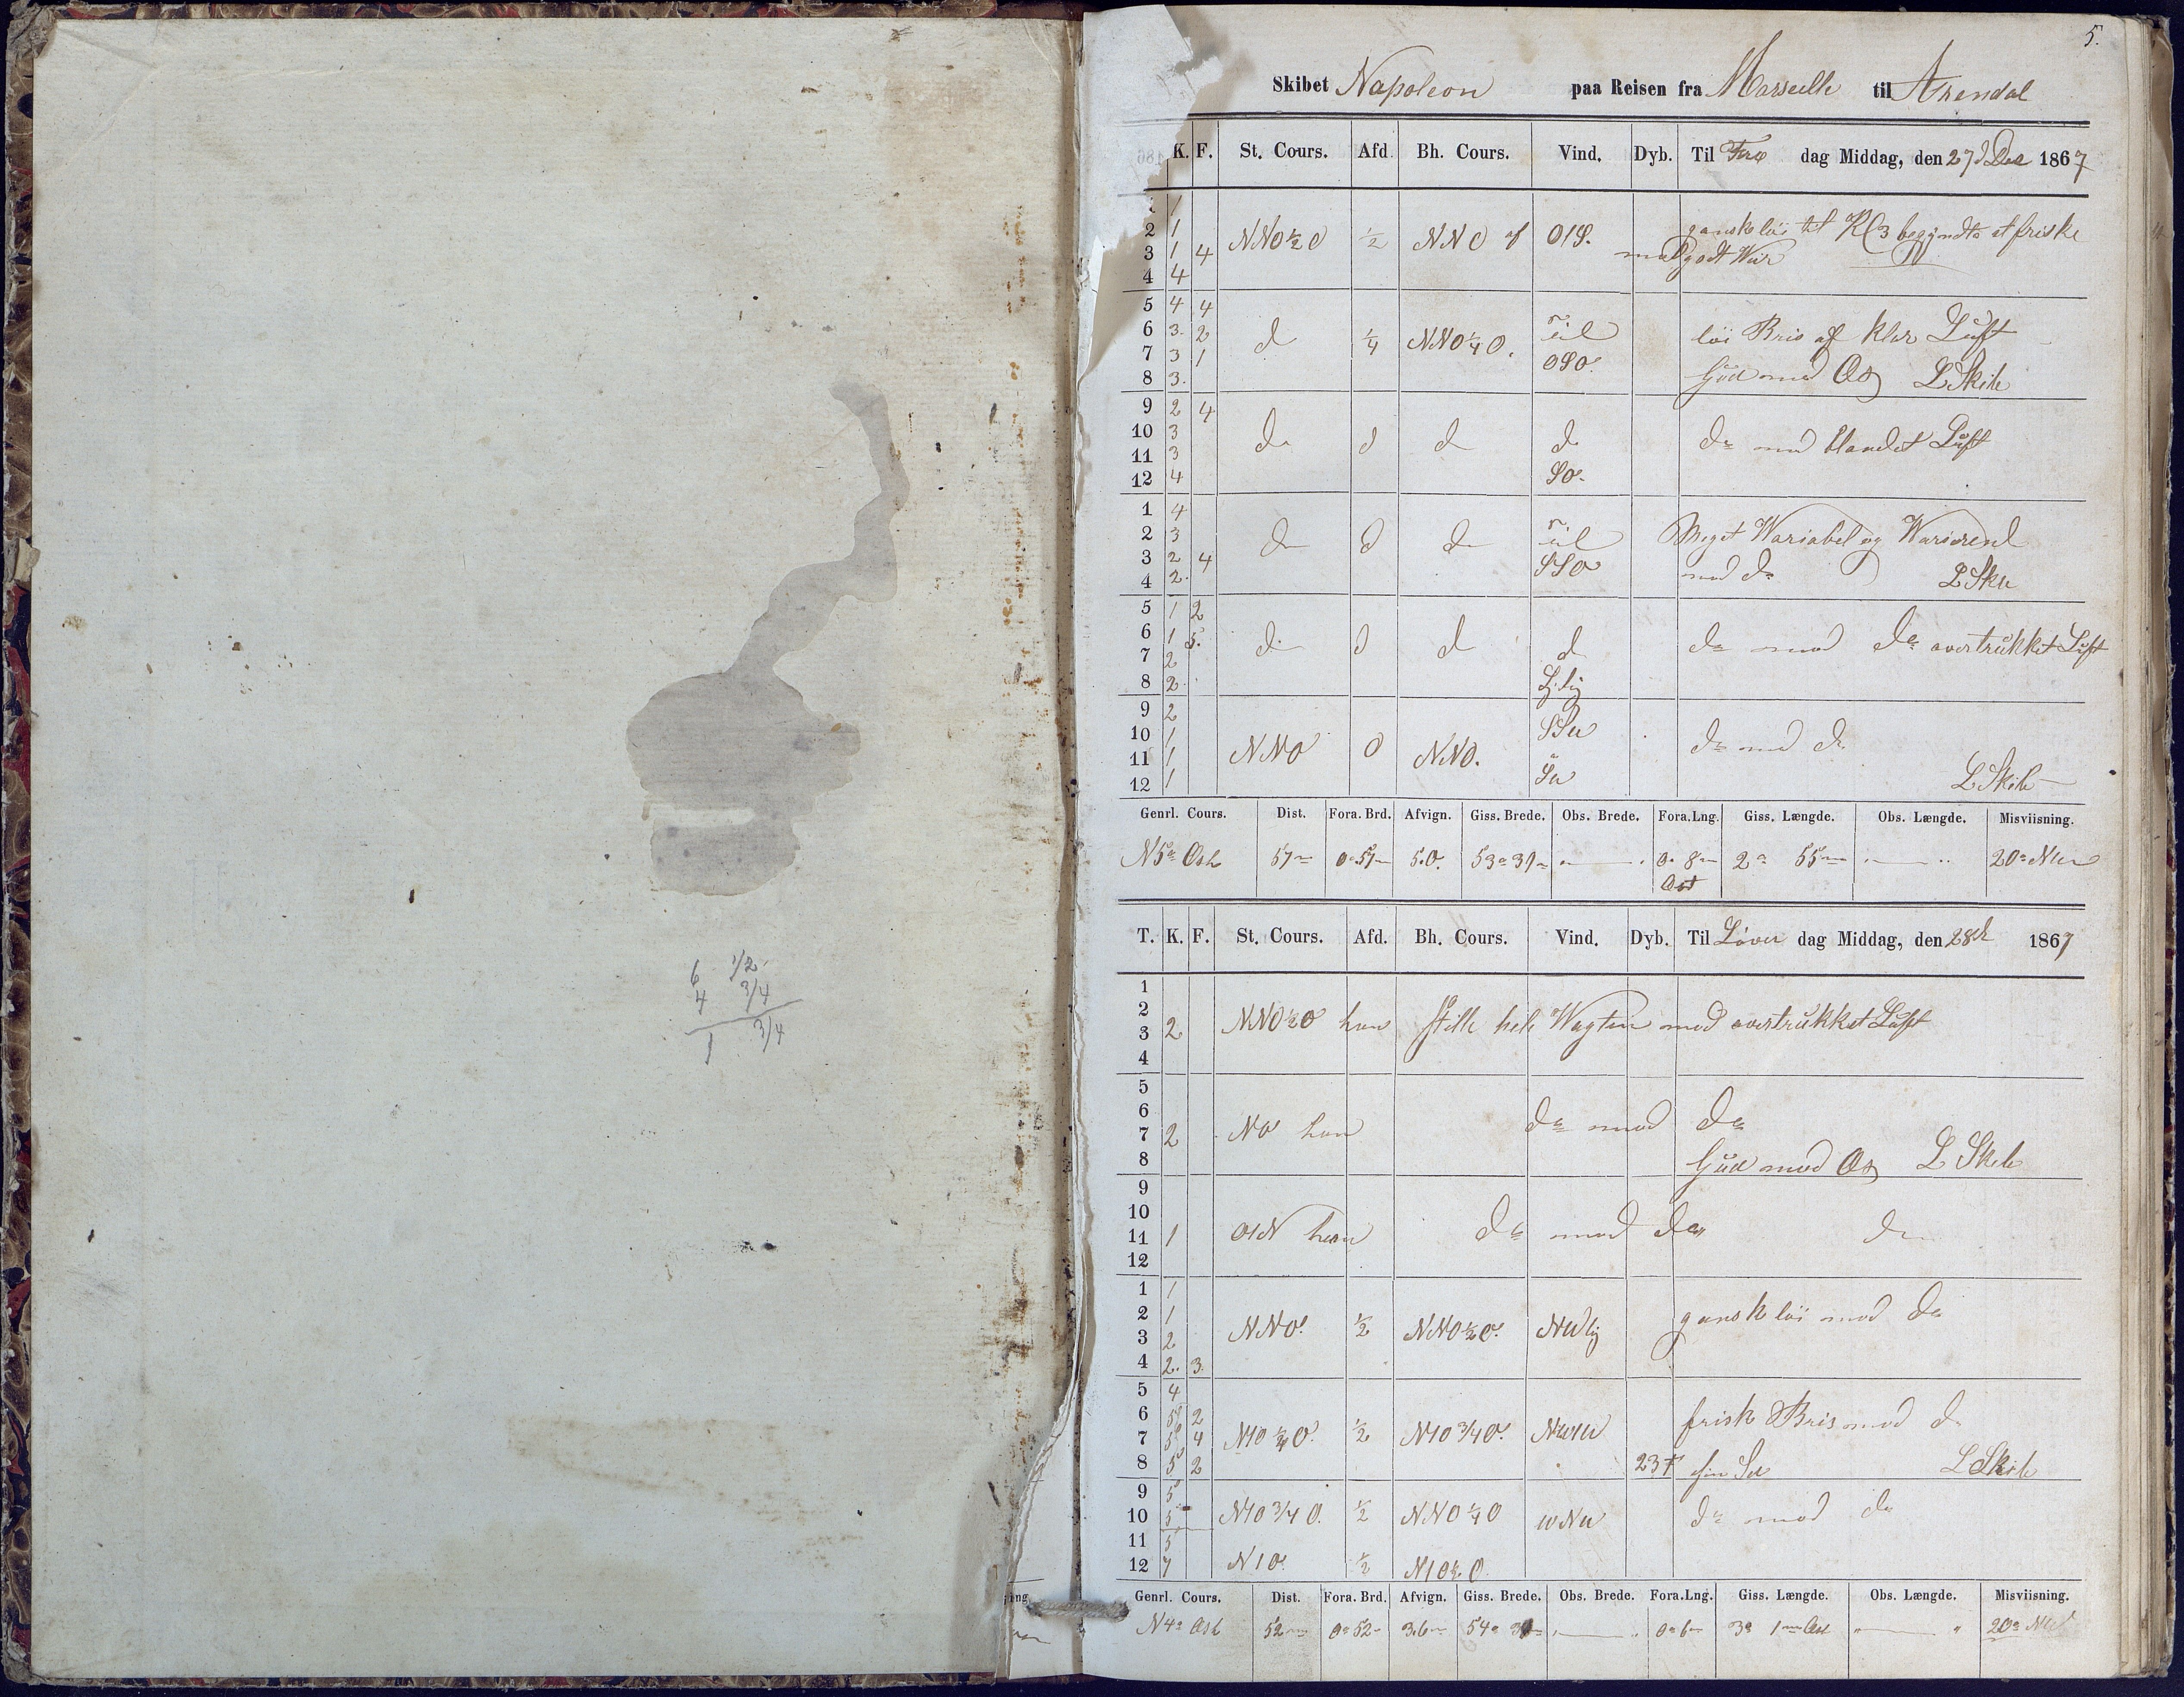 5.
Skibet Napoleon paa Reisen fra Marseille til Arendal
K. F. St. Cours. Afd. Bh. Cours. Vind. Dyb. Til Fre dag Middag, den 27d Dec 1867
1 1
2 1 NNO½O ½ NNO O/S. ganske löi til Kl 3 begyndte at friske
3 1 4 med godt Weir
4 4
5 4 4
6 3 2 d ¼ NNO¼O. til löi Bris af klar Luft
7 3 1 OSO.
8 3 Gud med Os L Skile
9 2 4
10 3 do d d d do med blandet Luft
11 3
12 4 SO.
1 4
2 3 do d do til Meget Wariabel og Warierend
3 2 4 SSO med do
4 2 L Skile
5 1 2
6 1 5 do d d d do med do overtrukket Luft
7 2
8 2 Sjlig
9 2 SSW
10 1 NNO O NNO. do med do
11 1 SW
12 1 L Skile
Genrl. Cours. Dist. Fora. Brd. Afvign. Giss. Brede. Obs. Brede. Fora.Lng. Giss. Længde. Obs. Længde. Misviisning.
N 5° Ost 57m 0°57m 5.0. 53°39m " " 0°8m Ost 2° 55m " " 20° NW
T. K. F. St. Cours. Afd. Bh. Cours. Vind. Dyb. Til Löver dag Middag, den 28d 1867
1
2 NNO½O han Stille hele Wagten med overtrukket Luft
3 2
4
5
6 NO han do med do
7 2
8 Gud med Os L Skile
9
10
11 1 O/N han do med do do
12
1 1
2 1 NNO. ½ NNO½O. NWlig ganske löi med do
3 2
4 2 3
5 4
6 5 2 frisk Bris med do
7 5 4 N/O¼O. ½ N/O¾O. NW/W
8 5 2 23 f fin Sd L Skile
9 5
10 5 N/O¾O. ½ NNO¼O WNW do med do
11 5
12 7 N/O. ½ N/O½O
Genrl. Cours. Dist. Fora. Brd. Afvign. Giss. Brede. Obs. Brede. Fora.Lng. Giss. Længde. Obs. Længde. Misviisning.
N 4° Ost 52m 0°52m 3.6m 54° 0°6m 3° 1m Ost " " 20° NW
6 1/2
4 3/4
1 3/4